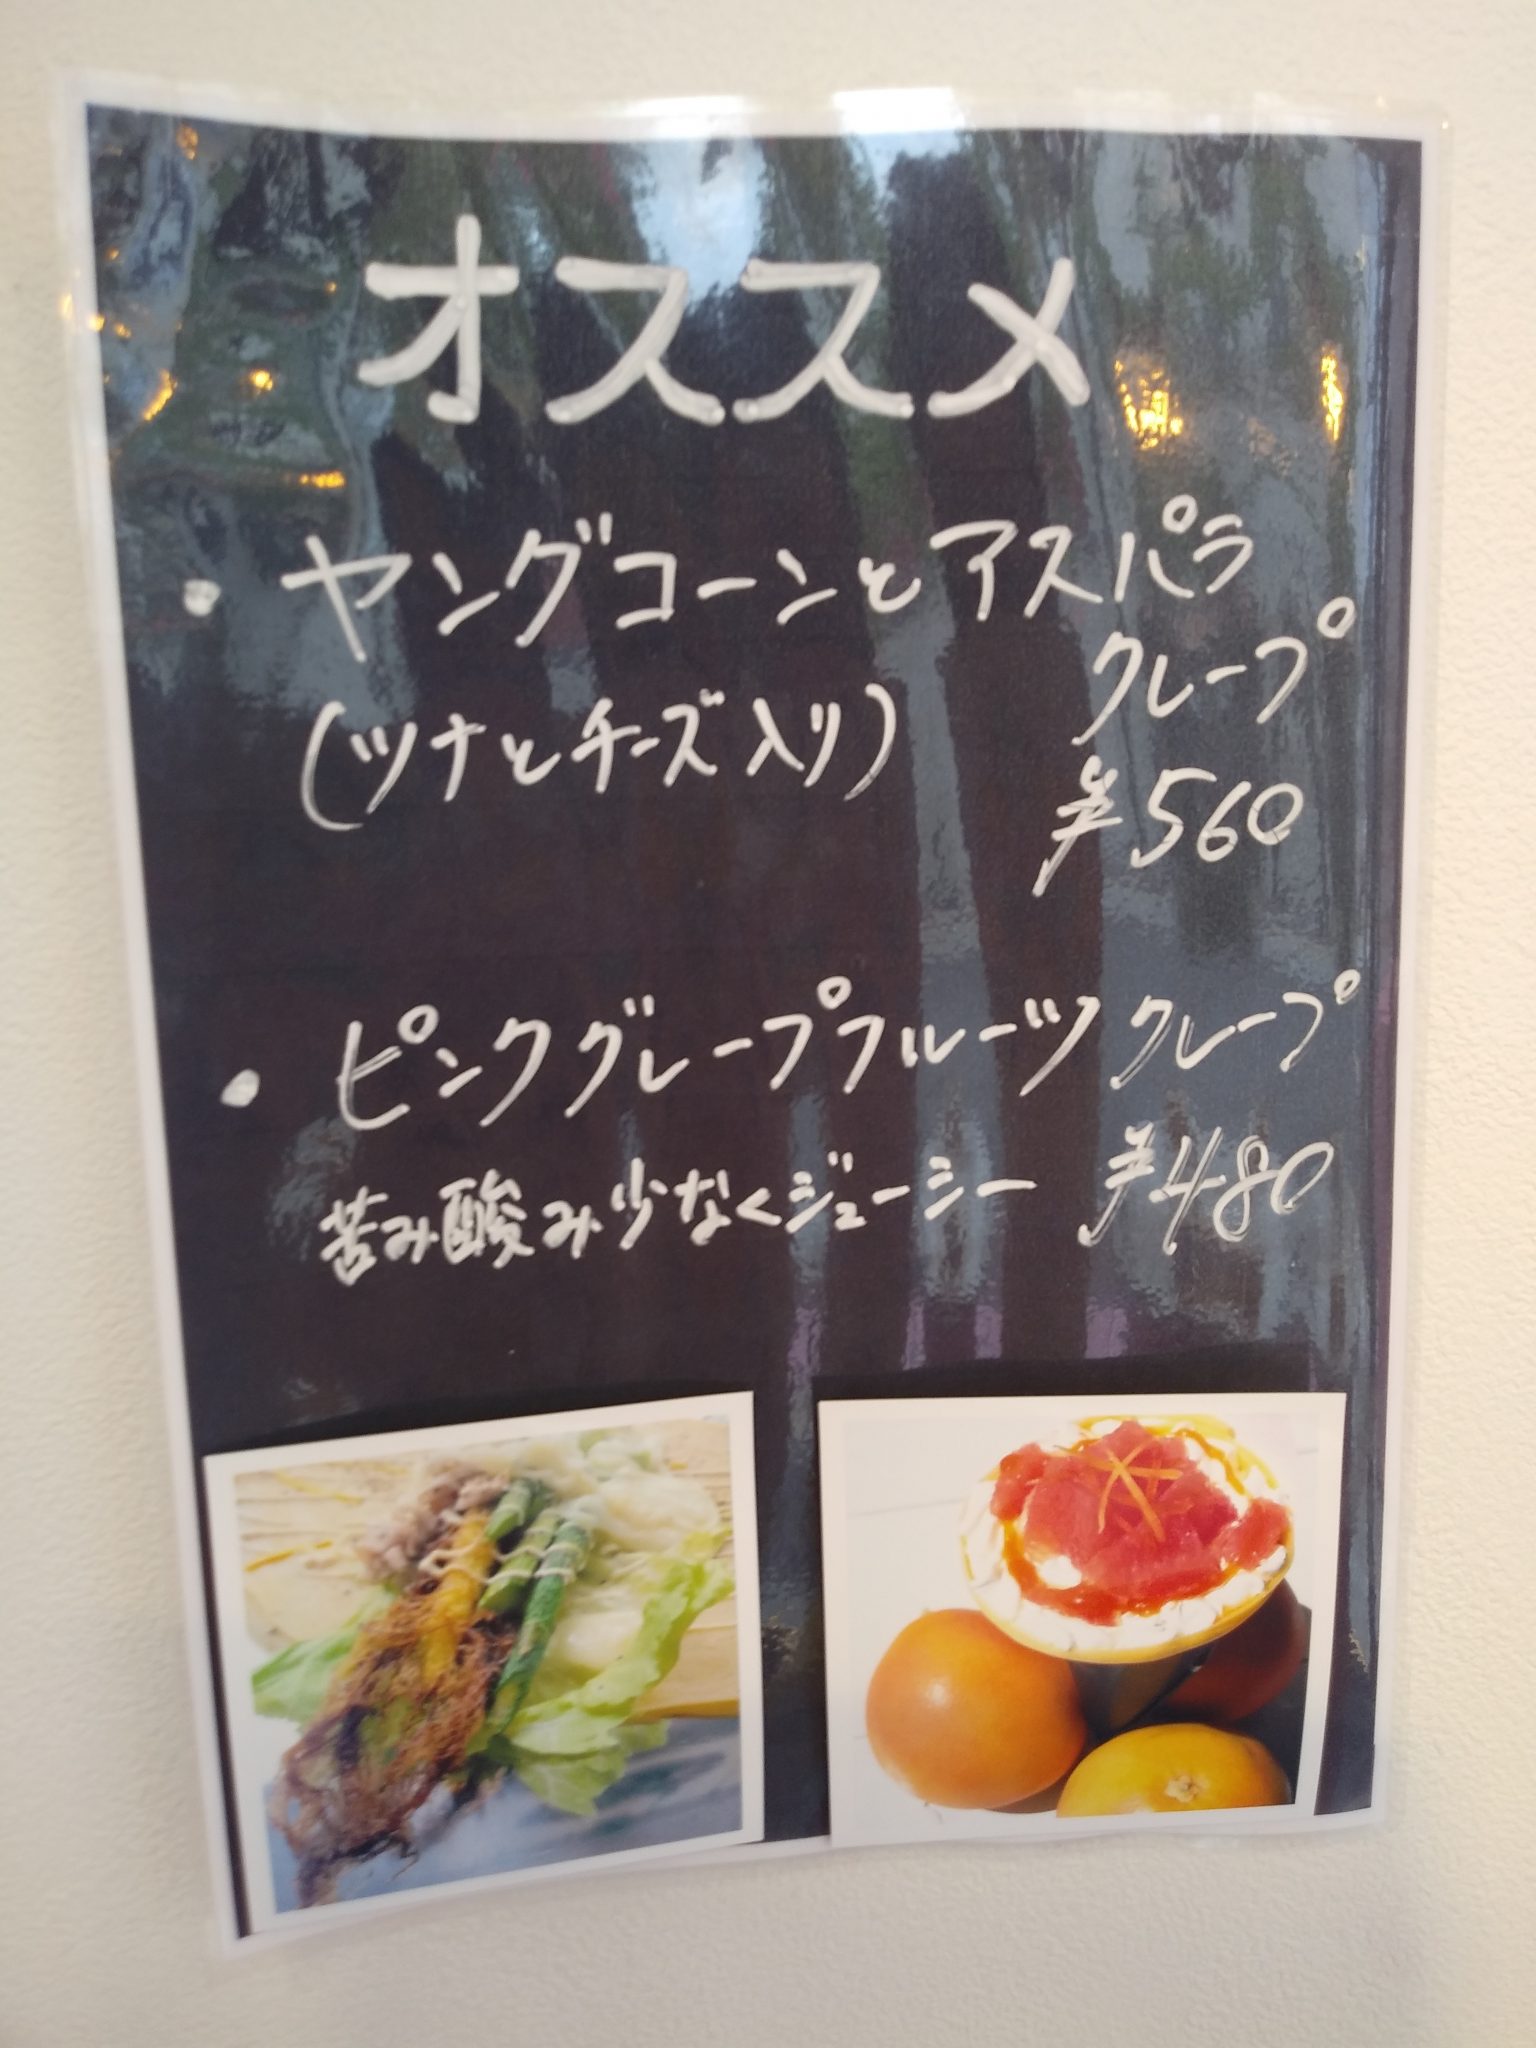 オススメ
・ヤングコーンとアスパラ
クレープ
(ツナとチーズ入り)
¥560
・ピンクグレープフルーツクレープ
苦み酸み少なくジューシー ¥480